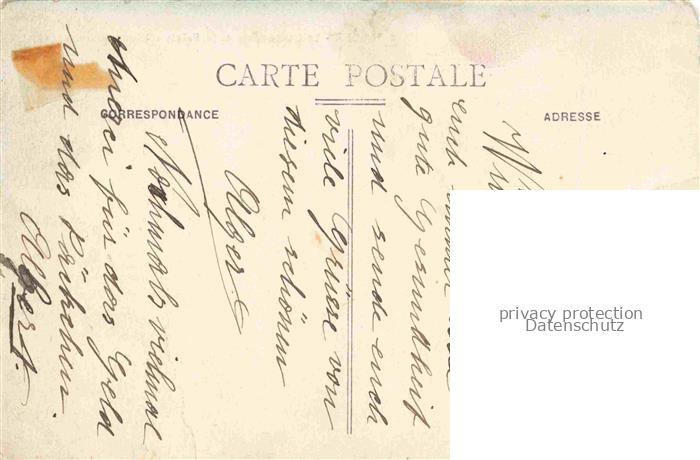 CARTE POSTALE
CORRESPONDANCE
ADRESSE
euch
gute Gesundheit
und sende euch
viele Grüsse von
diesem schönen
Alger.
Nochmals vielmal
für das Geld
und das Päckchen.
Albert.
privacy protection
Datenschutz